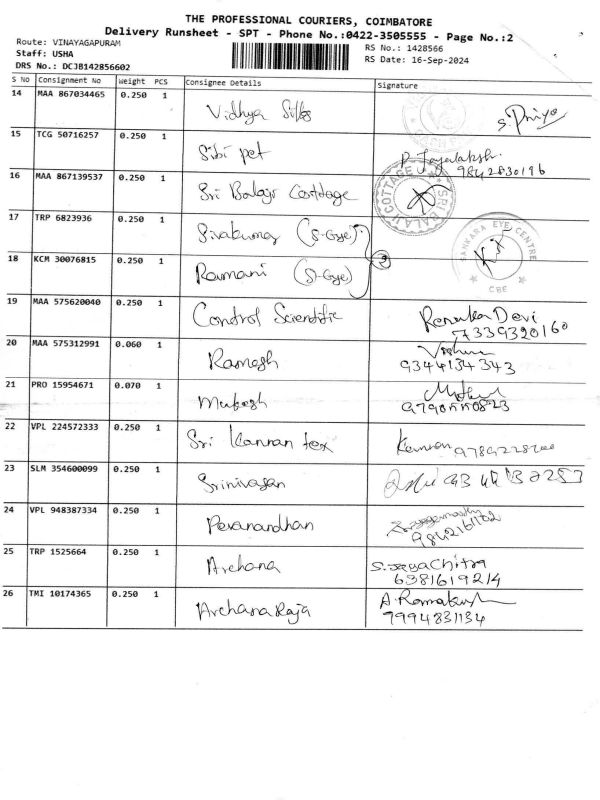 THE PROFESSIONAL COURIERS, COIMBATORE
Delivery Runsheet - SPT - Phone No.:0422-3505555 - Page No.:2
Route: VINAYAGAPURAM
RS No.: 1428566
Staff: USHA
RS Date: 16-Sep-2024
DRS No.: DCJB142856602
S No Consignment No Weight PCS Consignee Details Signature
14 MAA 867034465 0.250 1 Vidhya Silks S. Priya
15 TCG 50716257 0.250 1 Sibi pet P. Jayalaksh. 9842830196
16 MAA 867139537 0.250 1 Sri Balaji Cottage
SRI BALAJI COTTAGE
17 TRP 6823936 0.250 1 Sivakumar (S-Eye)
18 KCM 30076815 0.250 1 Ramani (S-Eye)
SANKARA EYE CENTRE
CBE
19 MAA 575620040 0.250 1 Control Scientific Renuka Devi
7339320160
20 MAA 575312991 0.060 1 Ramesh
9344134343
21 PRO 15954671 0.070 1 Mukesh
22 VPL 224572333 0.250 1 Sri Kannan tex Kannan
23 SLM 354600099 0.250 1 Srinivasan
24 VPL 948387334 0.250 1
25 TRP 1525664 0.250 1 Archana S. Jaya Chitra
6381619214
26 TMI 10174365 0.250 1 Archana Raja
9994831134